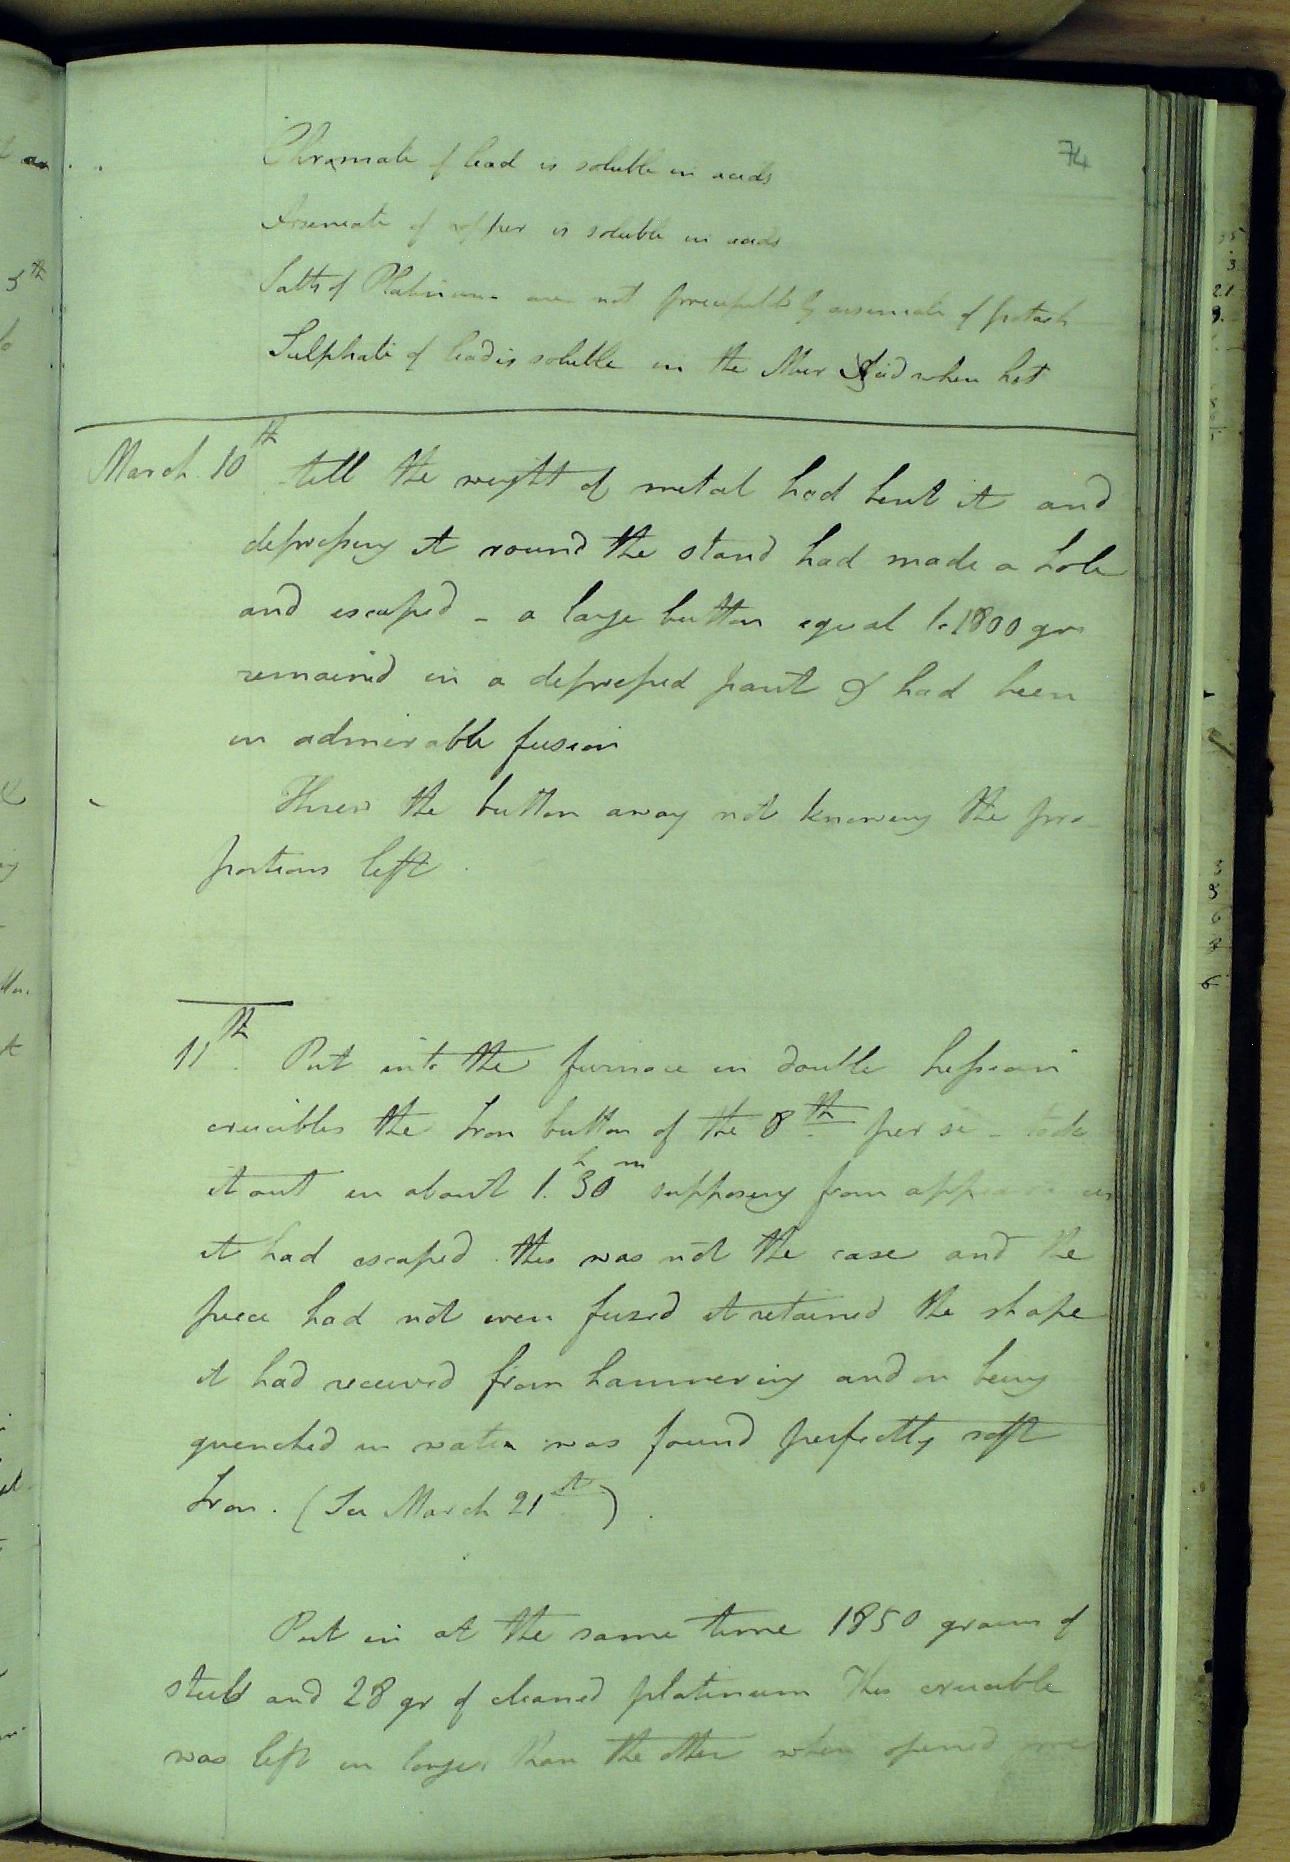 74
Chromate of lead is soluble in acids
Arseniate of copper is soluble in acids
Salts of Platinum are not precipitable by arseniate of potash
Sulphate of lead is soluble in the Mur Acid when hot
March 10th till the weight of metal had bent it and
depressing it round the stand had made a hole
and escaped - a large button equal to 1800 grs
remained in a depressed part & had been
in admirable fusion
Threw the button away not knowing the pro-
portions left.
11th. Put into the furnace in double hessian
crucibles the Iron button of the 8th per se - took
it out in about 1.h 30m supposing from appearances
it had escaped. this was not the case and the
piece had not even fused it retained the shape
it had received from hammering and on being
quenched in water was found perfectly soft
Iron. (See March 21st).
Put in at the same time 1850 grains of
steel and 28 gr of cleaned platinum This crucible
was left in longer than the other when opened